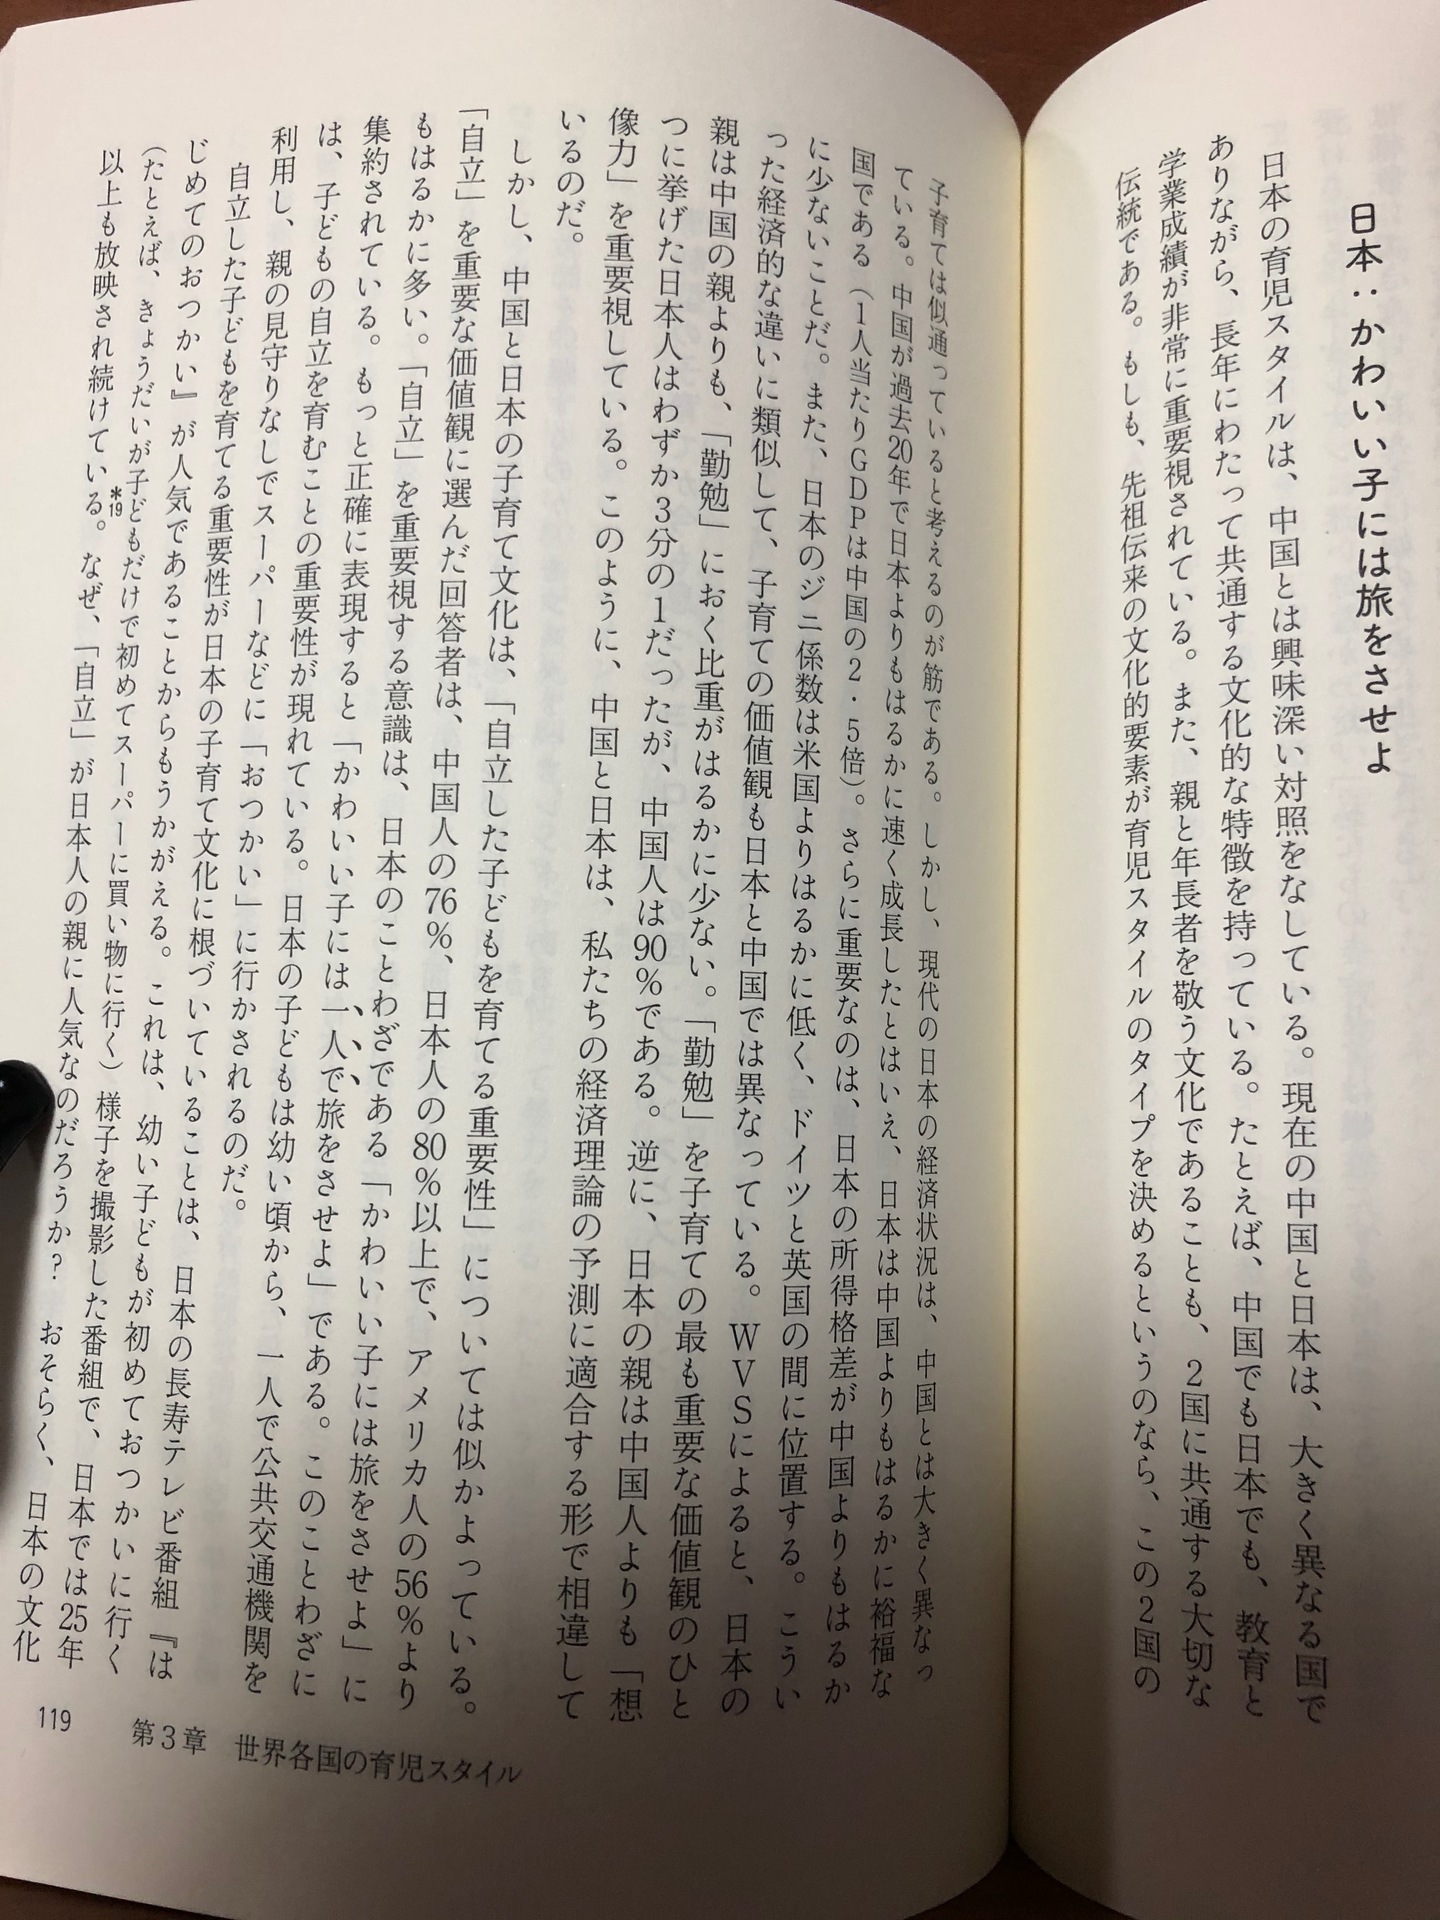 日本：かわいい子には旅をさせよ
日本の育児スタイルは、中国とは興味深い対照をなしている。現在の中国と日本は、大きく異なる国で
ありながら、長年にわたって共通する文化的な特徴を持っている。たとえば、中国でも日本でも、教育と
学業成績が非常に重要視されている。また、親と年長者を敬う文化であることも、2国に共通する大切な
伝統である。もしも、先祖伝来の文化的要素が育児スタイルのタイプを決めるというのなら、この2国の
子育ては似通っていると考えるのが筋である。しかし、現代の日本の経済状況は、中国とは大きく異なっ
ている。中国が過去20年で日本よりもはるかに速く成長したとはいえ、日本は中国よりもはるかに裕福な
国である（1人当たりGDPは中国の2・5倍）。さらに重要なのは、日本の所得格差が中国よりもはるか
に少ないことだ。また、日本のジニ係数は米国よりはるかに低く、ドイツと英国の間に位置する。こうい
った経済的な違いに類似して、子育ての価値観も日本と中国では異なっている。WVSによると、日本の
親は中国の親よりも、「勤勉」におく比重がはるかに少ない。「勤勉」を子育ての最も重要な価値観のひと
つに挙げた日本人はわずか3分の1だったが、中国人は90％である。逆に、日本の親は中国人よりも「想
像力」を重要視している。このように、中国と日本は、私たちの経済理論の予測に適合する形で相違して
いるのだ。
しかし、中国と日本の子育て文化は、「自立した子どもを育てる重要性」については似かよっている。
「自立」を重要な価値観に選んだ回答者は、中国人の76％、日本人の80％以上で、アメリカ人の56％より
もはるかに多い。「自立」を重要視する意識は、日本のことわざである「かわいい子には旅をさせよ」に
集約されている。もっと正確に表現すると「かわいい子には一人で旅をさせよ」である。このことわざに
は、子どもの自立を育むことの重要性が現れている。日本の子どもは幼い頃から、一人で公共交通機関を
利用し、親の見守りなしでスーパーなどに「おつかい」に行かされるのだ。
自立した子どもを育てる重要性が日本の子育て文化に根づいていることは、日本の長寿テレビ番組『は
じめてのおつかい』が人気であることからもうかがえる。これは、幼い子どもが初めておつかいに行く
（たとえば、きょうだいが子どもだけで初めてスーパーに買い物に行く）様子を撮影した番組で、日本では25年
以上も放映され続けている。*19 なぜ、「自立」が日本人の親に人気なのだろうか？ おそらく、日本の文化
119 第3章 世界各国の育児スタイル